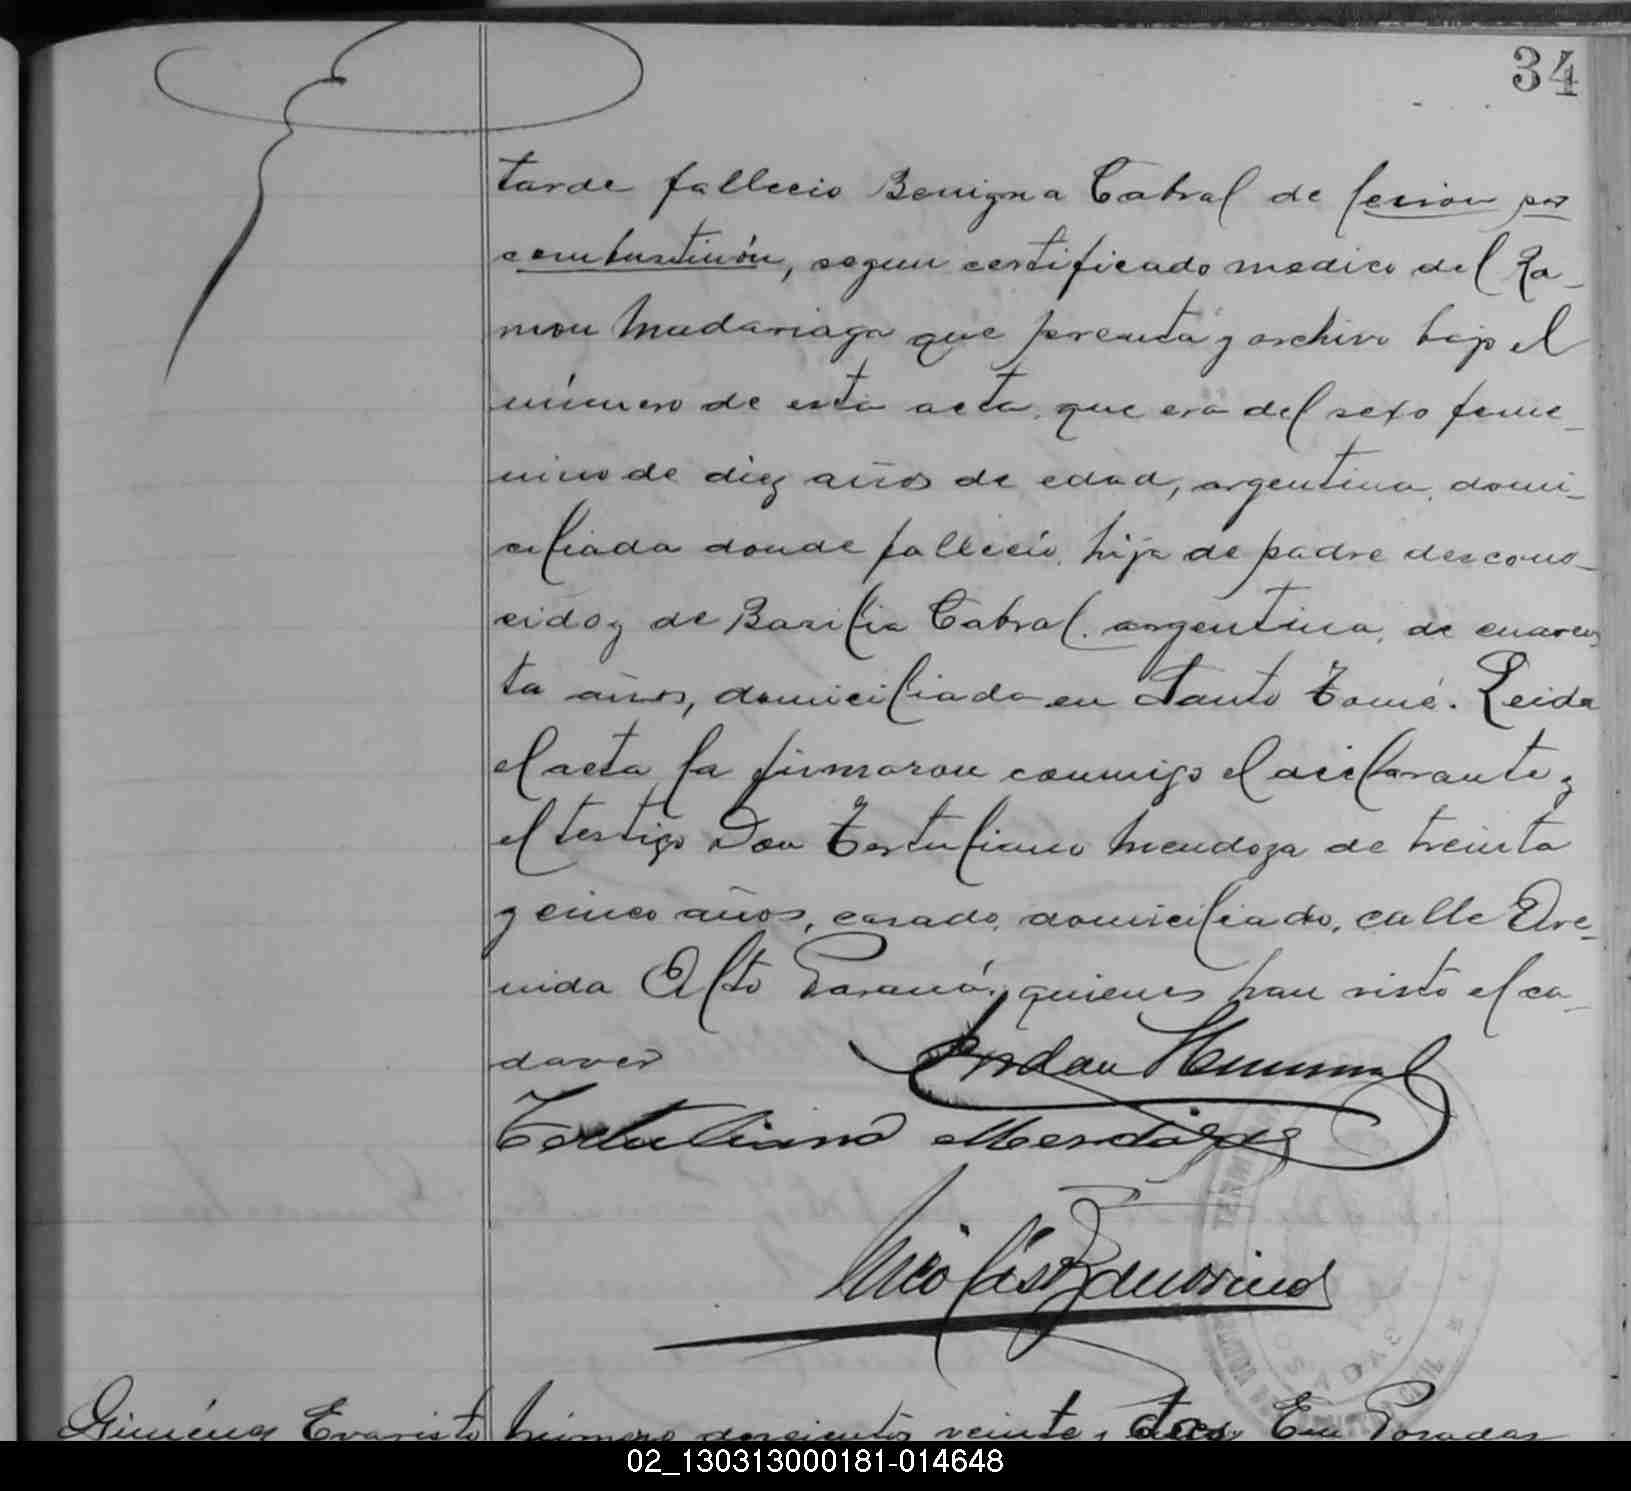 34
tarde fallecio Benigna Cabral de lesion por
combustinón, segun certificado medico del Ra-
mon Madariaga que presenta y archivo bajo el
número de esta acta, que era del sexo feme-
nino de diez años de edad, argentina, domi-
ciliada donde fallecio, hija de padre descono-
cido y de Basilia Cabral, argentina, de cuaren-
ta años, domiciliada en Santo Tomé. Leida
el acta la firmaron conmigo el declarante y
el testigo Don Tertuliano Mendoza de treinta
y cinco años, casado, domiciliado, calle Ave-
nida Alto Paraná, quienes han visto el ca-
daver
Tertuliano Mendoza
Giménez Evaristo Número doscientos veinte y dos En Posadas
02_130313000181-014648